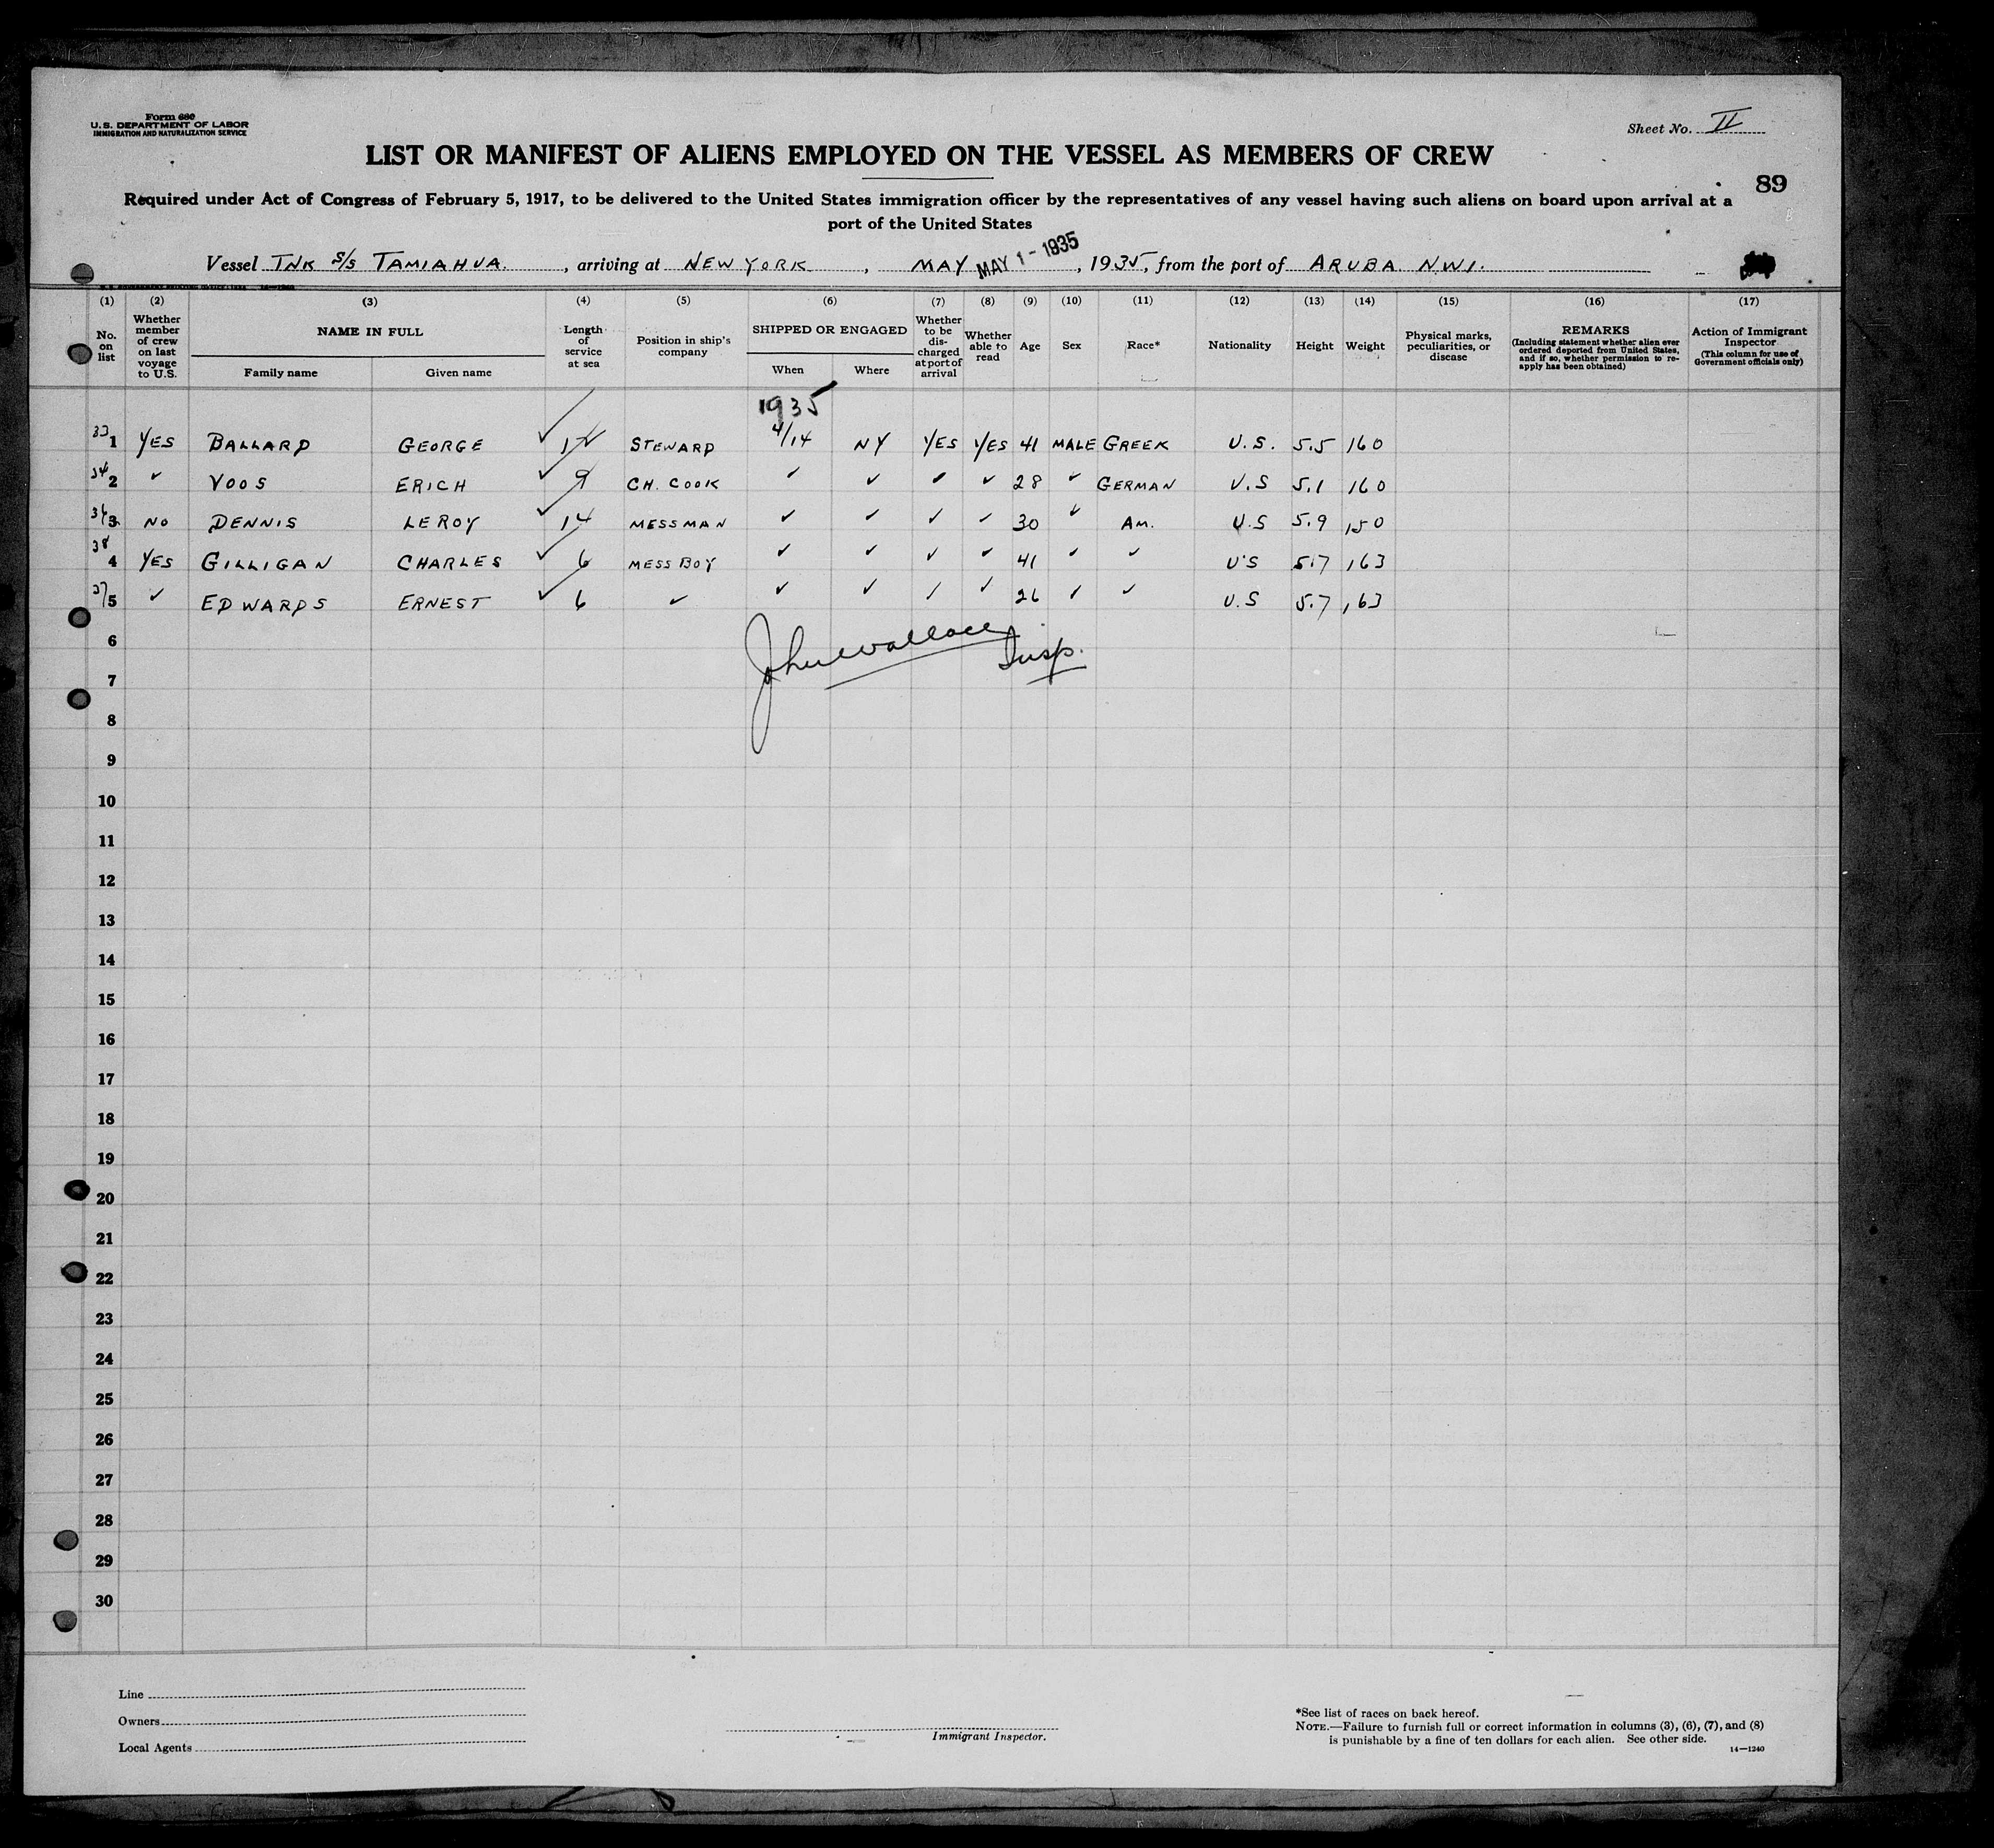 Form 680
U.S. DEPARTMENT OF LABOR
IMMIGRATION AND NATURALIZATION SERVICE
Sheet No. II
LIST OR MANIFEST OF ALIENS EMPLOYED ON THE VESSEL AS MEMBERS OF CREW
89
Required under Act of Congress of February 5, 1917, to be delivered to the United States immigration officer by the representatives of any vessel having such aliens on board upon arrival at a
port of the United States
Vessel TNK S/S TAMIAHUA, arriving at NEW YORK, MAY MAY 1 - 1935, 1935, from the port of ARUBA N.W.I.
(1) (2) (3) (4) (5) (6) (7) (8) (9) (10) (11) (12) (13) (14) (15) (16) (17)
No. on list
Whether member of crew on last voyage to U.S.
NAME IN FULL
Family name
Given name
Length of service at sea
Position in ship's company
SHIPPED OR ENGAGED
When
Where
Whether to be discharged at port of arrival
Whether able to read
Age
Sex
Race*
Nationality
Height
Weight
Physical marks, peculiarities, or disease
REMARKS
(Including statement whether alien ever ordered deported from United States, and if so, whether permission to reapply has been obtained)
Action of Immigrant Inspector
(This column for use of Government officials only)
1935
33 1 YES BALLARD GEORGE ✓ STEWARD 4/14 NY YES YES 41 MALE GREEK U.S. 5.5 160
34 2 ✓ VOOS ERICH ✓ 9 CH. COOK ✓ ✓ ✓ ✓ 28 ✓ GERMAN U.S 5.1 160
3 NO DENNIS LEROY ✓ 14 MESSMAN ✓ ✓ ✓ ✓ 30 ✓ AM. U.S 5.9 150
38 4 YES GILLIGAN CHARLES ✓ 6 MESS BOY ✓ ✓ ✓ ✓ 41 ✓ ✓ U.S 5.7 163
37 5 ✓ EDWARDS ERNEST ✓ 6 ✓ ✓ ✓ ✓ ✓ 26 ✓ ✓ U.S 5.7 163
John Wallace Insp.
6
7
8
9
10
11
12
13
14
15
16
17
18
19
20
21
22
23
24
25
26
27
28
29
30
Line
Owners
Local Agents
Immigrant Inspector.
*See list of races on back hereof.
NOTE.—Failure to furnish full or correct information in columns (3), (6), (7), and (8)
is punishable by a fine of ten dollars for each alien. See other side.
14—1240